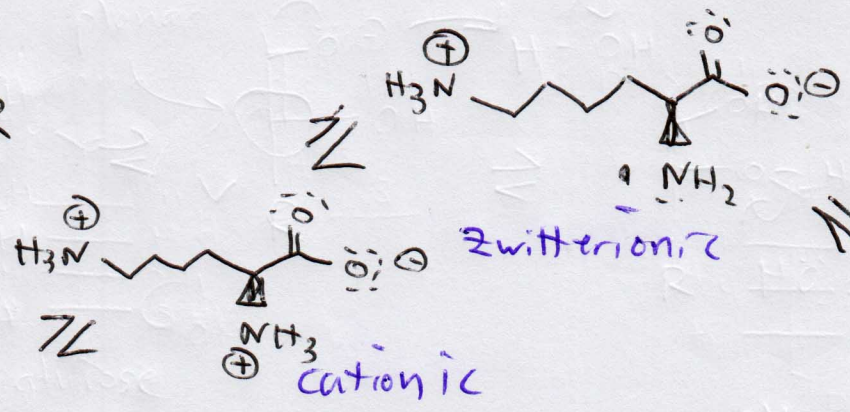 H₃N ⊕
O
O ⊖
NH₂
zwitterionic
H₃N ⊕
O
O ⊖
NH₃
⊕
cationic